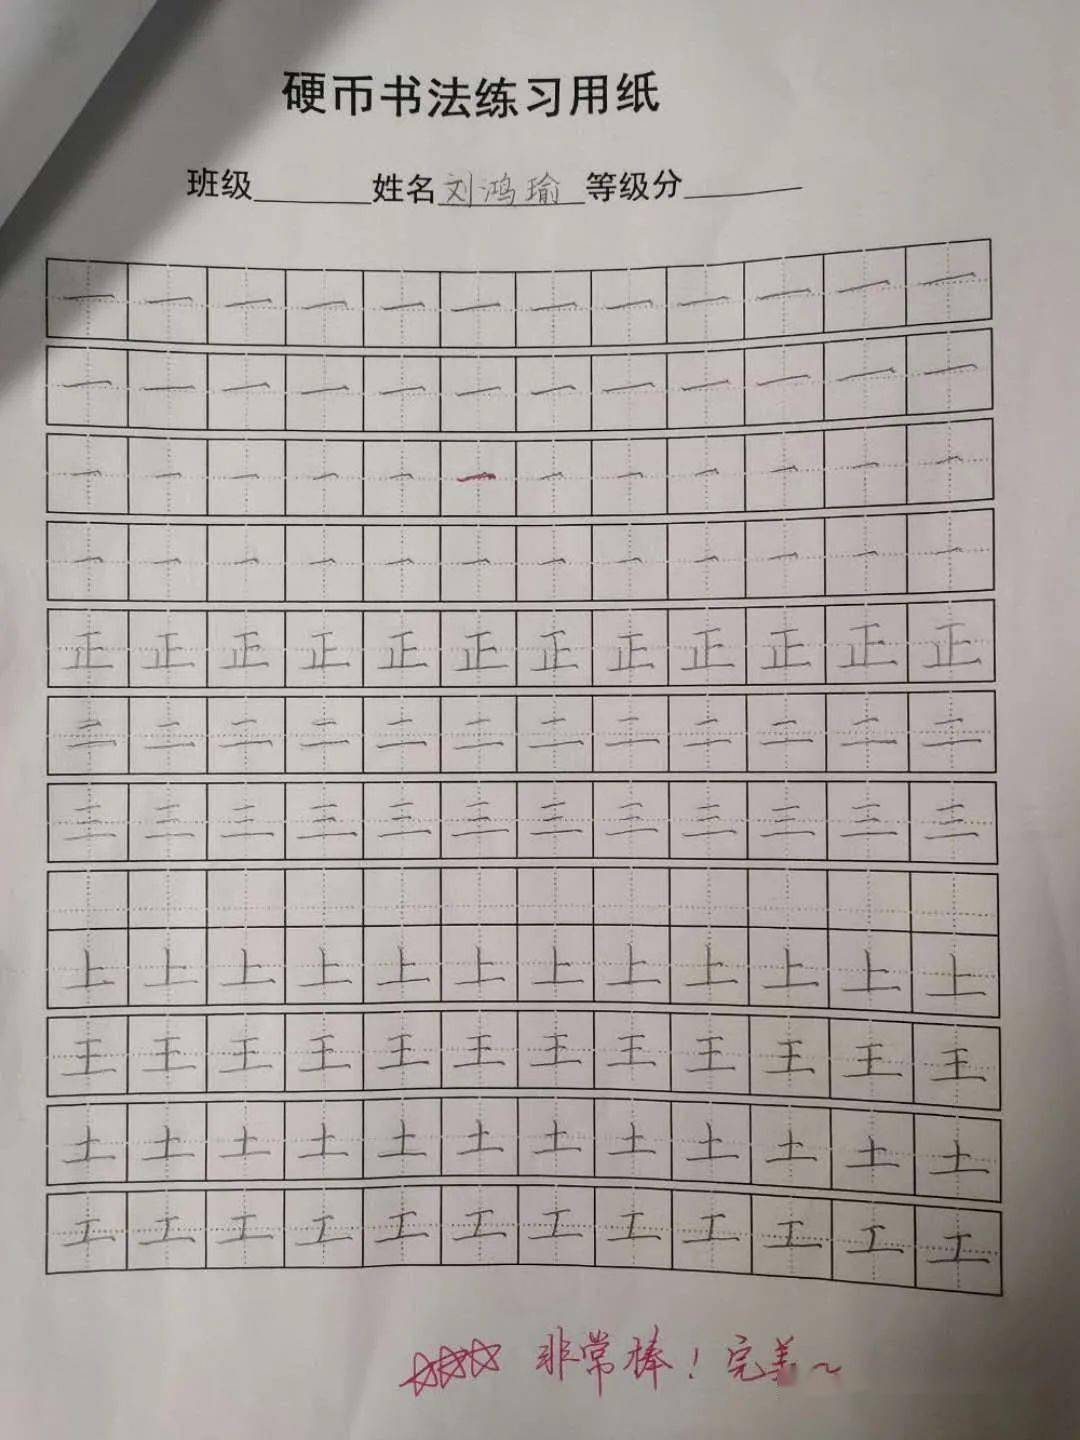 硬币书法练习用纸
班级 姓名 刘鸿瑜 等级分
一 一 一 一 一 一 一 一 一 一 一 一
一 一 一 一 一 一 一 一 一 一 一 一
一 一 一 一 一 一 一 一 一 一 一 一
一 一 一 一 一 一 一 一 一 一 一 一
正 正 正 正 正 正 正 正 正 正 正 正
二 二 二 二 二 二 二 二 二 二 二 二
三 三 三 三 三 三 三 三 三 三 三 三
上 上 上 上 上 上 上 上 上 上 上 上
王 王 王 王 王 王 王 王 王 王 王 王
土 土 土 土 土 土 土 土 土 土 土 土
工 工 工 工 工 工 工 工 工 工 工 工
非常棒！完美～